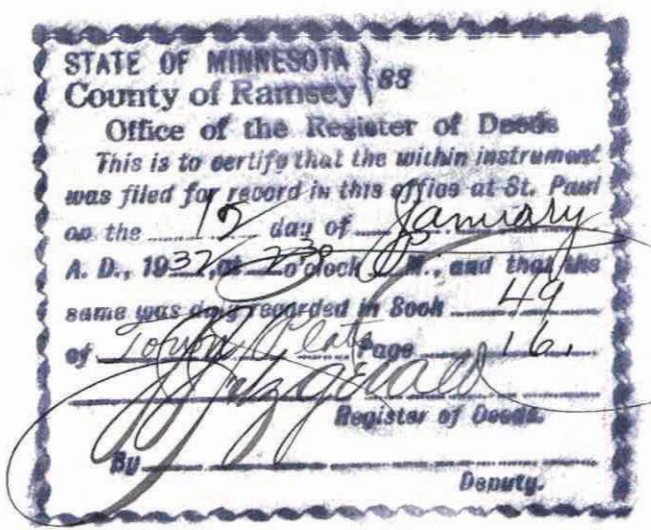 STATE OF MINNESOTA } ss
County of Ramsey
Office of the Register of Deeds
This is to certify that the within instrument
was filed for record in this office at St. Paul
on the day of January
A. D., 1937, at 2 30 o'clock P M., and that the
same was duly recorded in Book 49
of Town Plats Page 16.
Fitzgerald
Register of Deeds.
By
Deputy.